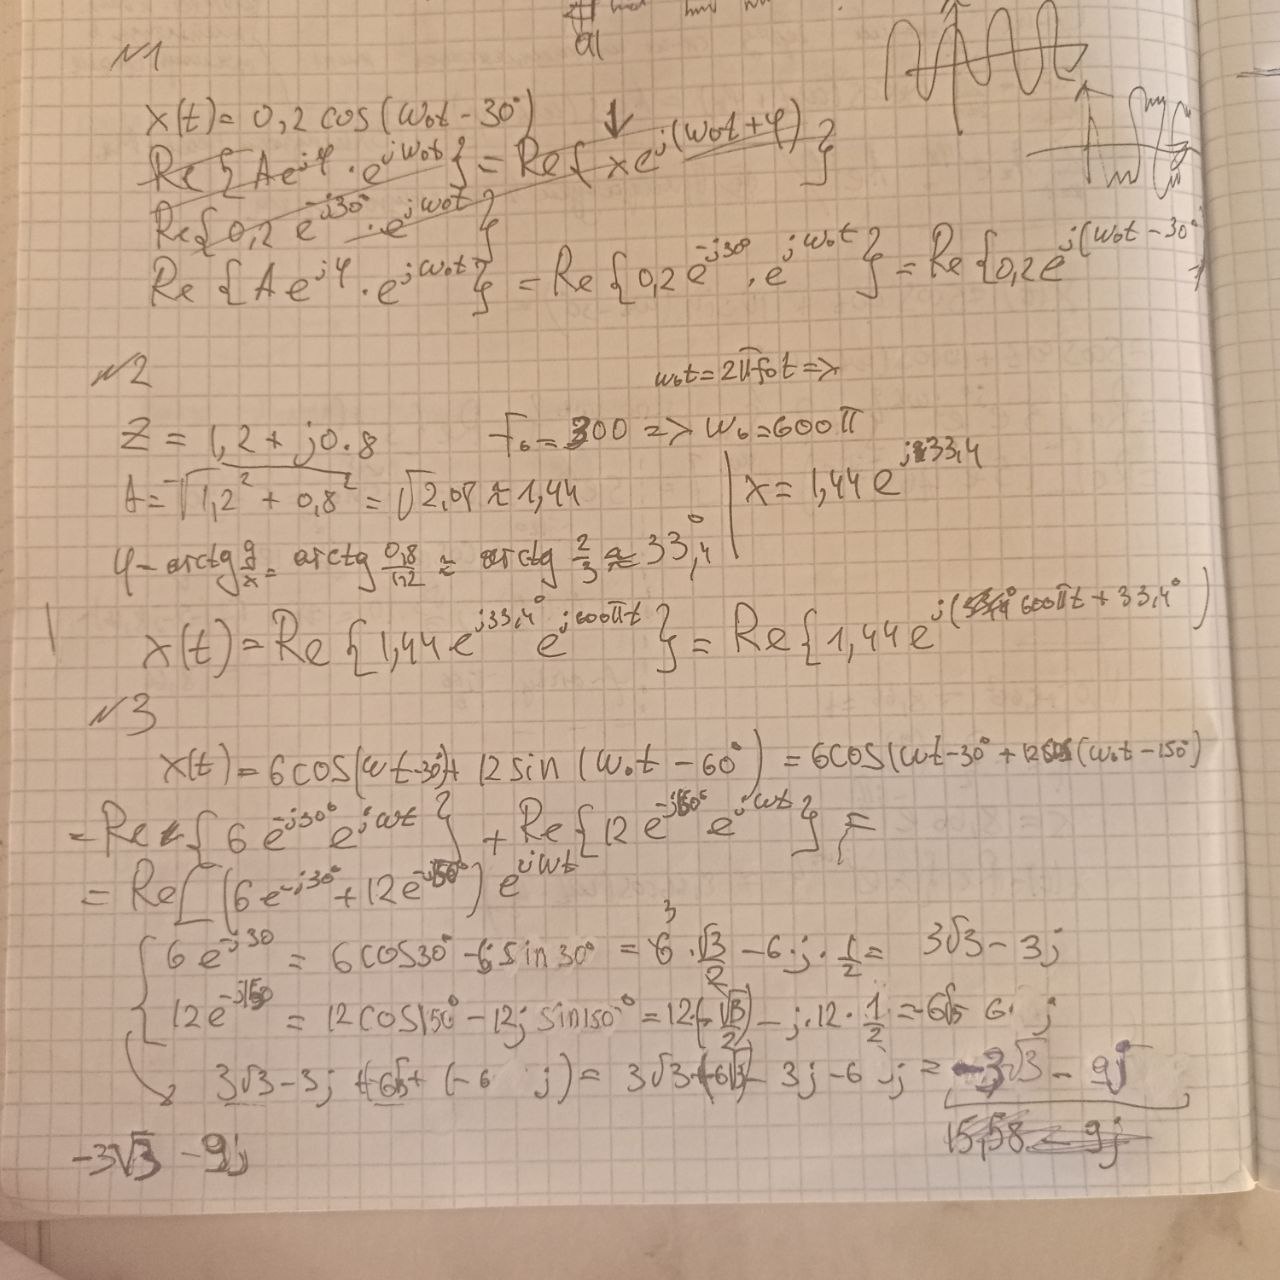 №1
x(t)= 0,2 cos(ω₀t - 30°)
Re{Ae^{jφ} · e^{jω₀t}} = Re{ xe^{j(ω₀t+φ)} }
Re{0,2 e^{-j30°} · e^{jω₀t}}
Re{Ae^{jφ} · e^{jω₀t}} = Re{0,2 e^{-j30°} · e^{jω₀t}} = Re{0,2e^{j(ω₀t - 30°
№2
ω₀t = 2πf₀t =>
Z = 1,2 + j0.8 F₀ = 300 => ω₀ = 600π
A = √(1,2² + 0,8²) = √2,08 ≈ 1,44 x = 1,44 e^{j33,4}
φ - arctg y/x = arctg 0,8/1,2 ≈ arctg 2/3 ≈ 33,4°
x(t) = Re{1,44 e^{j33,4°} e^{j600πt}} = Re{1,44 e^{j(600πt + 33,4°)
№3
x(t) = 6cos(ωt-30°)+ 12 sin (ω₀t - 60°) = 6cos(ωt-30° + 12cos(ω₀t - 150°)
= Re{6 e^{-j30°} e^{jωt}} + Re{12 e^{-j150°} e^{jωt}} =
= Re[(6e^{-j30°} + 12e^{-j150°}) e^{jωt}
6 e^{-j30} = 6cos30° - 6j sin30° = 6 · √3/2 - 6·j · 1/2 = 3√3 - 3j
12e^{-j150} = 12cos150° - 12j sin150° = 12(-√3/2) - j·12 · 1/2 = -6√3 6· j
3√3 - 3j + -6√3 + (-6 j) = 3√3 + (-6√3) - 3j - 6 j = -3√3 - 9j
15,58 - 9j
-3√3 - 9j